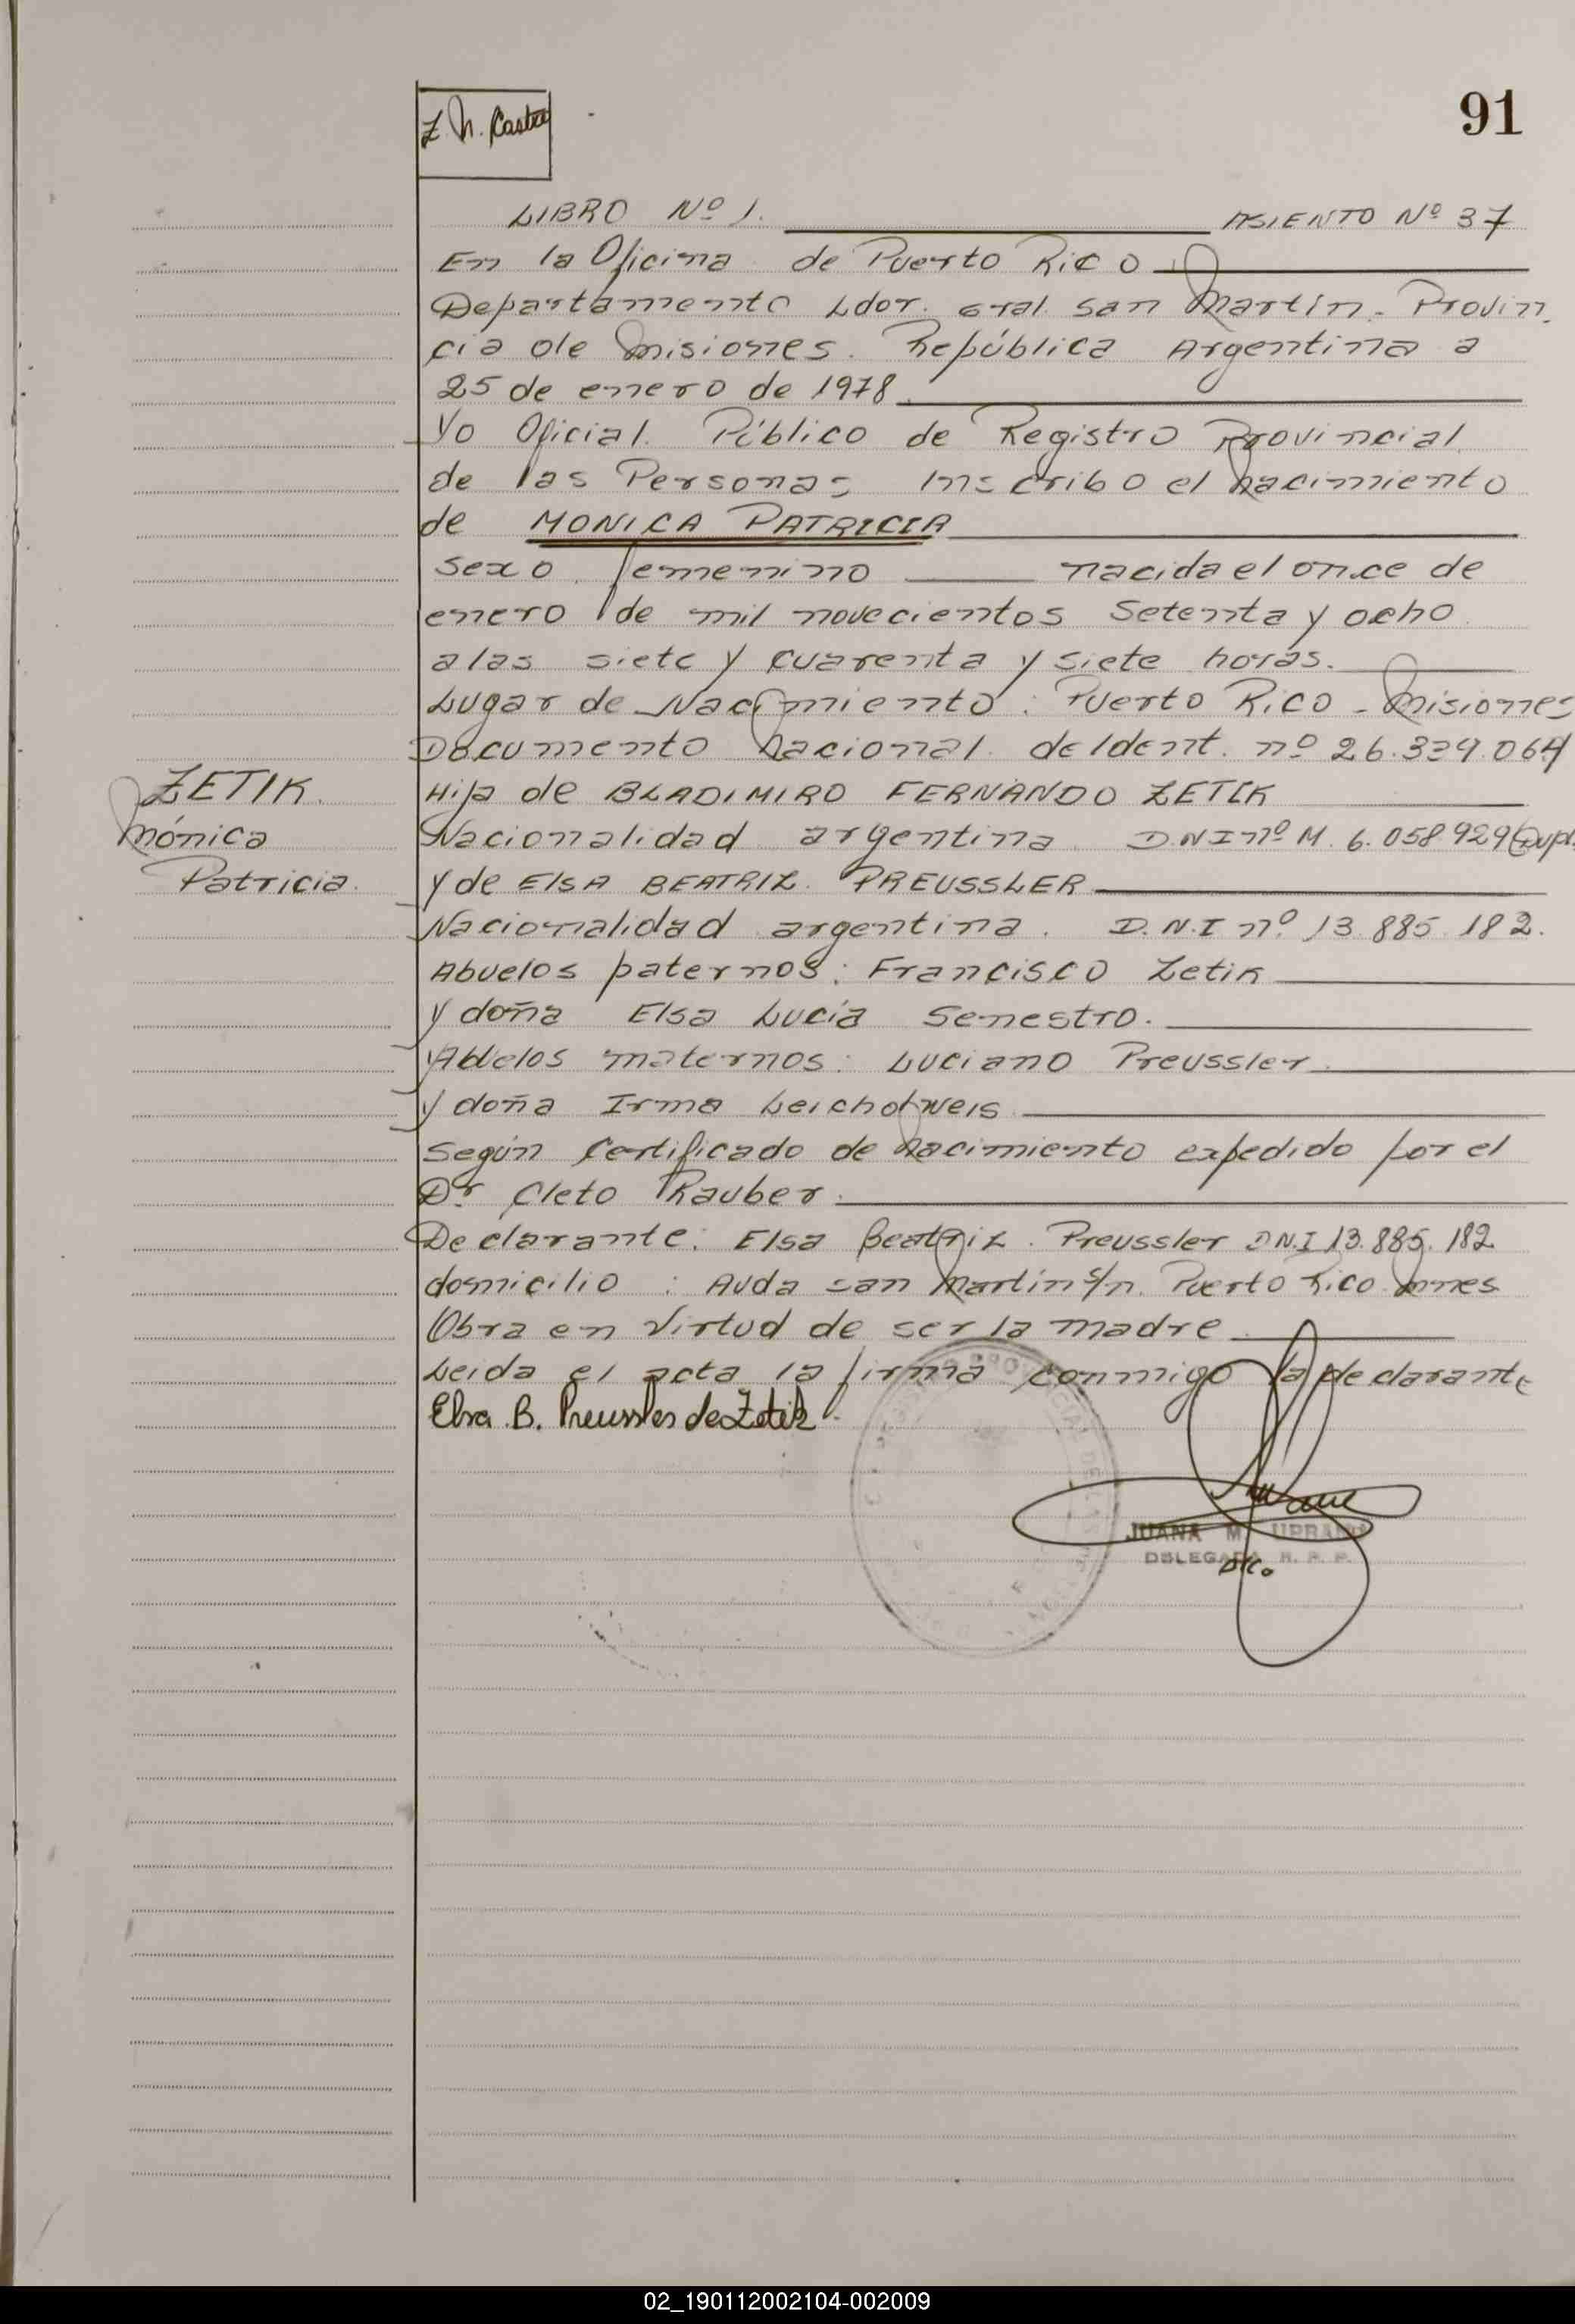 Z. N. Castro
91
LIBRO Nº 1. ASIENTO Nº 37
En la Oficina de Puerto Rico
Departamento Ldor. Gral. San Martín. Provin
cia de Misiones. República Argentina a
25 de enero de 1978
Yo Oficial Público de Registro Provincial
de las Personas Inscribo el nacimiento
de MONICA PATRICIA
Sexo femenino nacida el once de
enero de mil novecientos Setenta y ocho
a las siete y cuarenta y siete horas.
Lugar de Nacimiento: Puerto Rico - Misiones
Documento Nacional de Ident. nº 26.329.064
ZETIK
Hija de BLADIMIRO FERNANDO ZETIK
Mónica
Nacionalidad argentina D.N.I nº M. 6.058.929 (Dupl.
Patricia.
y de ElSA BEATRIZ. PREUSSLER
Nacionalidad argentina. D.N.I nº 13.885.182.
Abuelos paternos: Francisco Zetik
y doña Elsa Lucía Senestro.
Abuelos maternos: Luciano Preussler
y doña Irma Leichtweis
Según Certificado de Nacimiento expedido por el
Dr. Cleto Rauber.
Declarante: Elsa Beatriz. Preussler D.N.I 13.885.182
domicilio: Avda San Martín s/n. Puerto Rico Mnes
Obra en Virtud de ser la madre
Leida el acta la firma conmigo la declarante
Elsa B. Preussler de Zetik
JUANA M.
DELEGADA R. P. P.
02_190112002104-002009